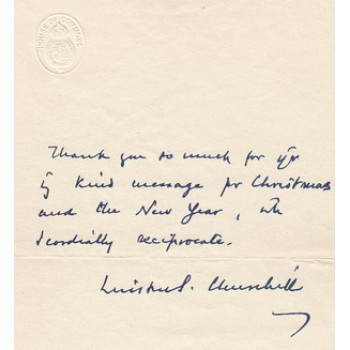 HOUSE OF COMMONS
Thank you so much for yr
kind message for Christmas
and the New Year, wh
I cordially reciprocate.
Winston S. Churchill